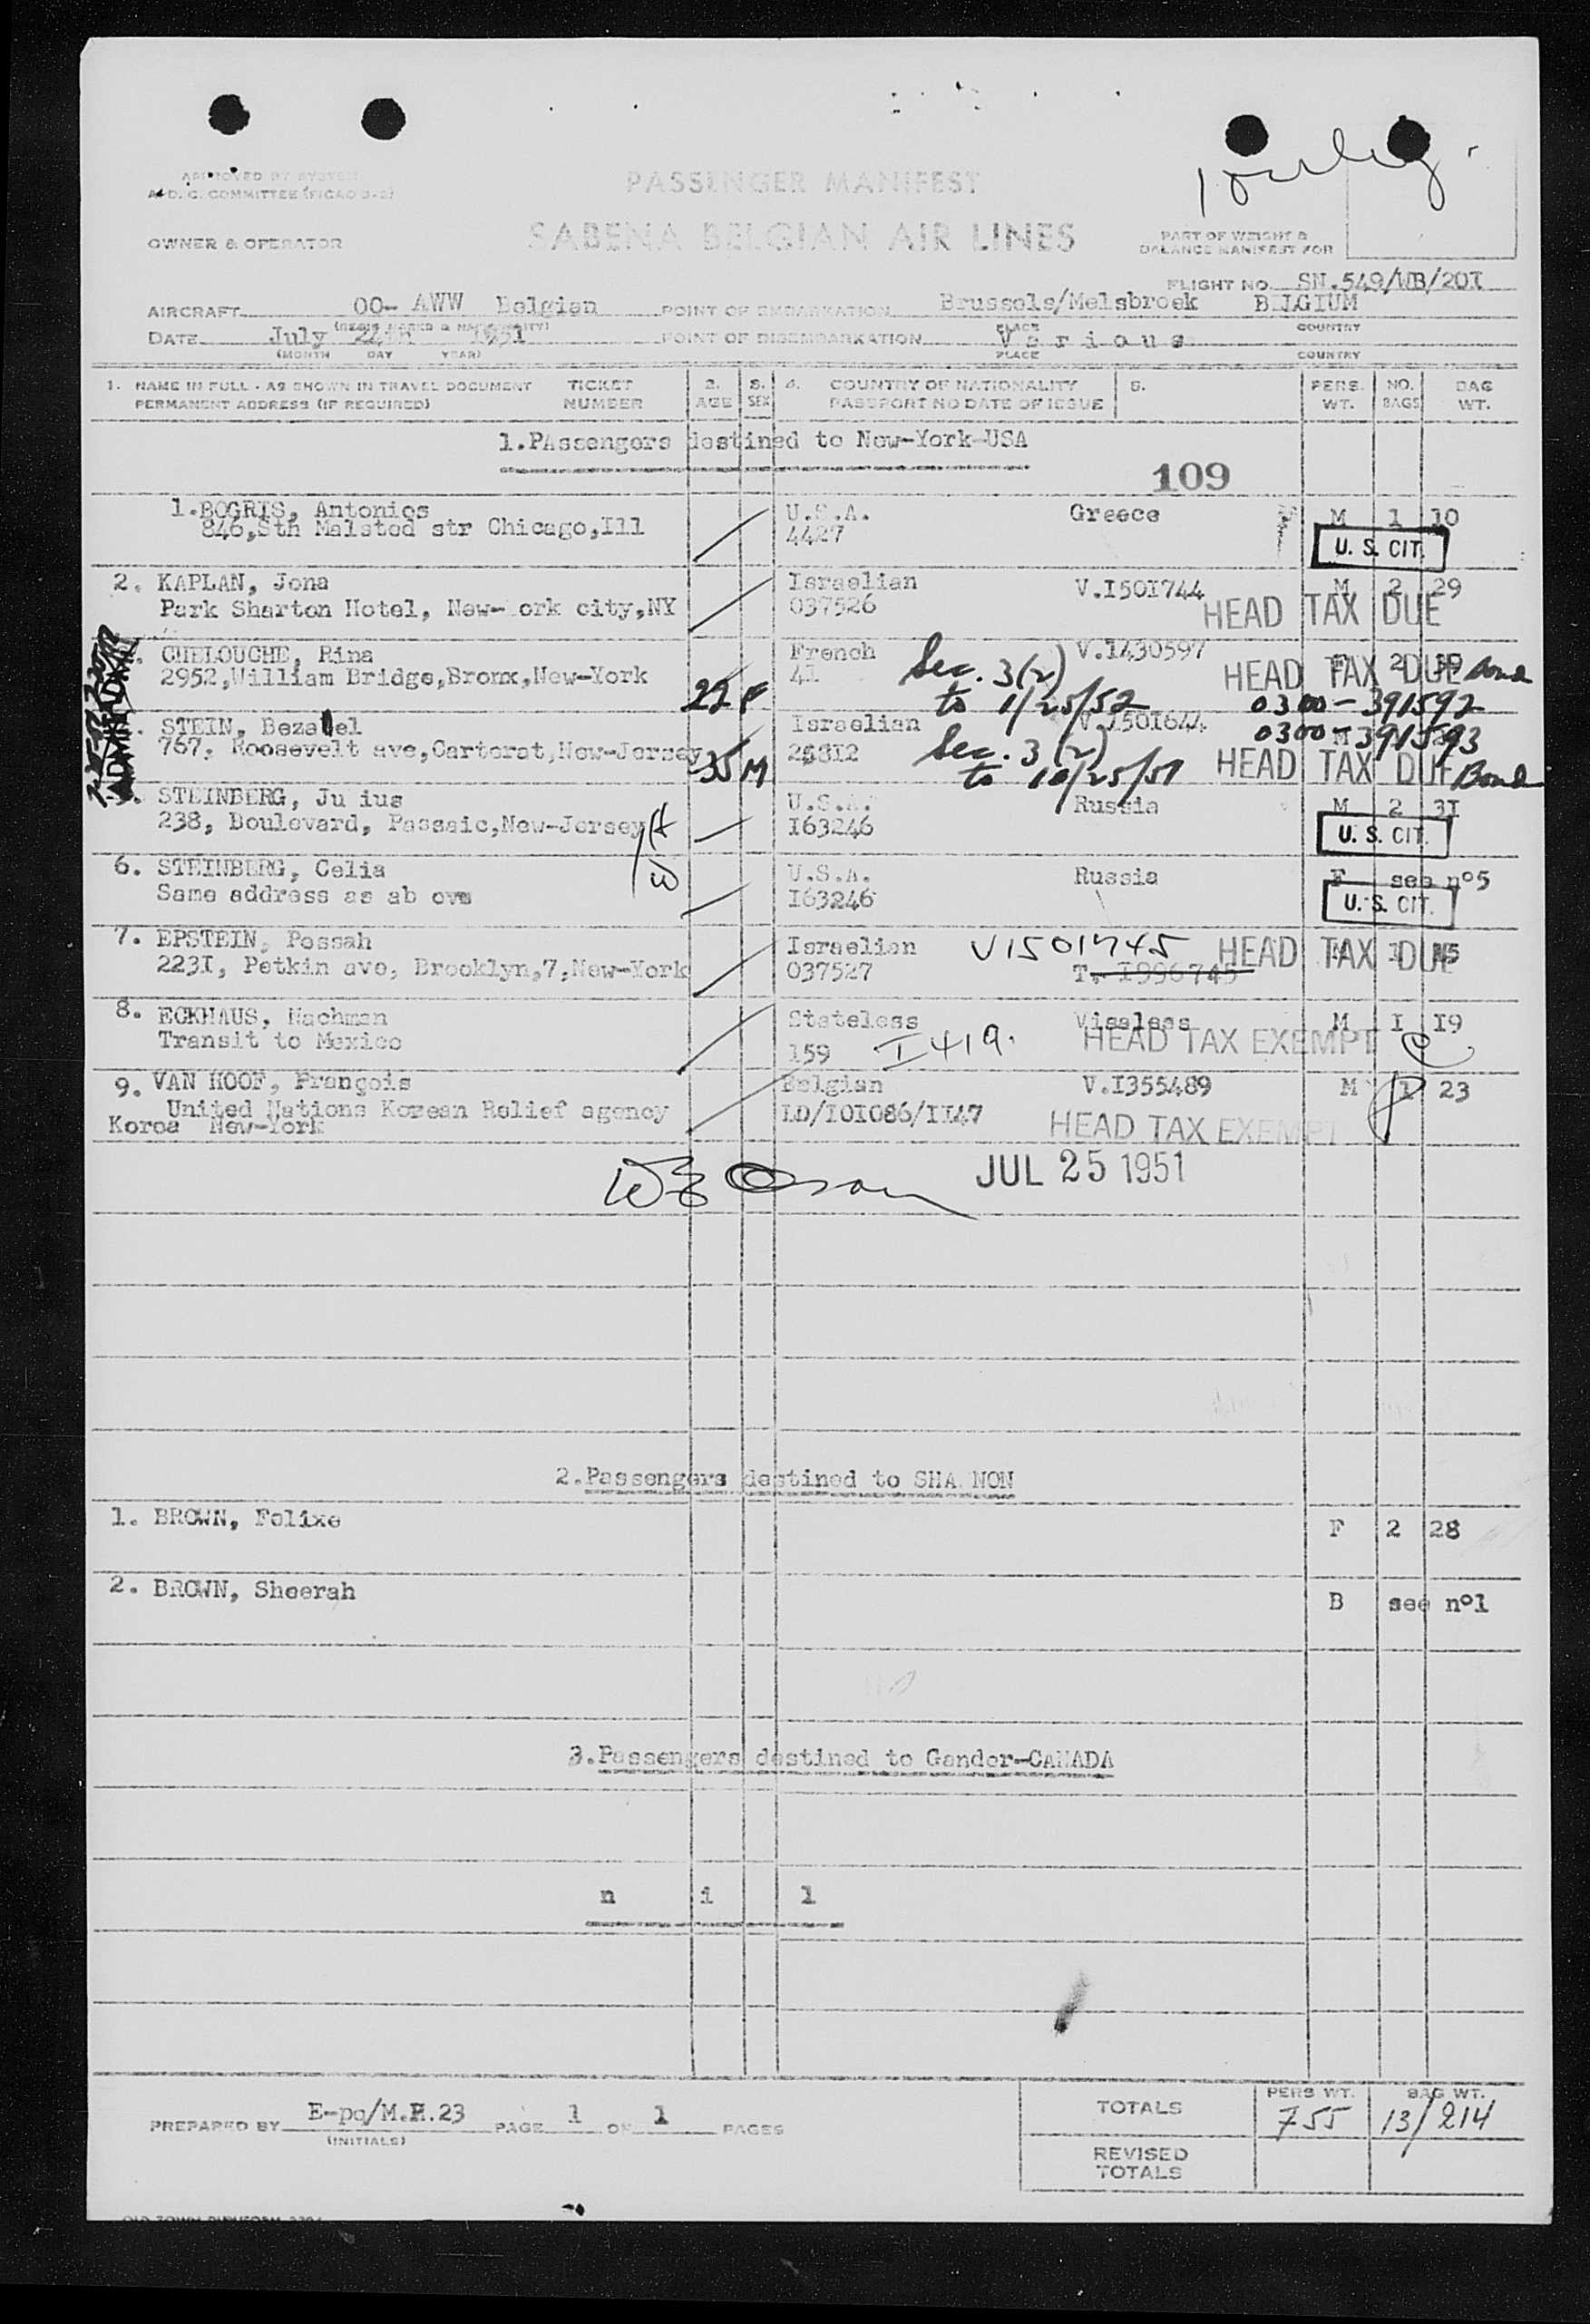 APPROVED BY SYSTEM
A.D.C. COMMITTEE (FICAO 3-2)
PASSENGER MANIFEST
OWNER & OPERATOR
SABENA BELGIAN AIR LINES
PART OF WEIGHT &
BALANCE MANIFEST FOR
FLIGHT NO. SN.549/WB/20I
AIRCRAFT OO- AWW Belgian POINT OF EMBARKATION Brussels/Melsbroek BELGIUM
(REGIS MARKS & NATIONALITY) PLACE COUNTRY
DATE July 24th 1951 POINT OF DISEMBARKATION V a r i o u s
(MONTH DAY YEAR) PLACE COUNTRY
1. NAME IN FULL - AS SHOWN IN TRAVEL DOCUMENT TICKET 2. 3. 4. COUNTRY OF NATIONALITY 5. PERS. NO. BAG
PERMANENT ADDRESS (IF REQUIRED) NUMBER AGE SEX PASSPORT NO DATE OF ISSUE WT. BAGS WT.
1.PAssengers destined to New-York-USA
109
1.BOGRIS, Antonios U.S.A. Greece M 1 10
846,Sth Halsted str Chicago,Ill 4427 U. S. CIT.
2. KAPLAN, Jona Israelian V.I50I744 M 2 29
Park Sharton Hotel, New- ork city,NY 037526 HEAD TAX DUE
CHELOUCHE, Rina French V.1430597 F 2
2952,William Bridge,Bronx,New-York 41 Sec. 3(2) HEAD TAX DUE Bond
22 F to 1/25/52 0300-391592
STEIN, Beza el Israelian V.I50I644 0300-391593
767, Roosevelt ave,Carteret,New-Jersey 35 M Sec. 3(2)
to 10/25/51 HEAD TAX DUE Bond
STEINBERG, Ju ius U.S.A. Russia M 2 3I
238, Boulevard, Passaic,New-Jersey I63246 U. S. CIT.
6. STEINBERG, Celia U.S.A. Russia F see n°5
Same address as ab ove I63246 U. S. CIT.
7. EPSTEIN, Pessah Israelian V1501745 HEAD TAX DUE
223I, Petkin ave, Brooklyn,7,New-York 037527 T.-I996745
8. ECKHAUS, Nachman Stateless Visaless M I I9
Transit to Mexico 159 I419. HEAD TAX EXEMPT
9. VAN HOOF, François Belgian V.I355489 M 1 23
United Nations Korean Relief agency LD/I0I086/II47 HEAD TAX EXEMPT
Korea New-York
JUL 25 1951
2.Passengers destined to SHA NON
1. BROWN, Felixe F 2 28
2. BROWN, Sheerah B see n°1
3.Passengers destined to Gander-CANADA
n i l
PREPARED BY E-pq/M.R.23 PAGE 1 OF 1 PAGES
(INITIALS)
TOTALS PERS WT. 755 BAG WT. 13/214
REVISED
TOTALS